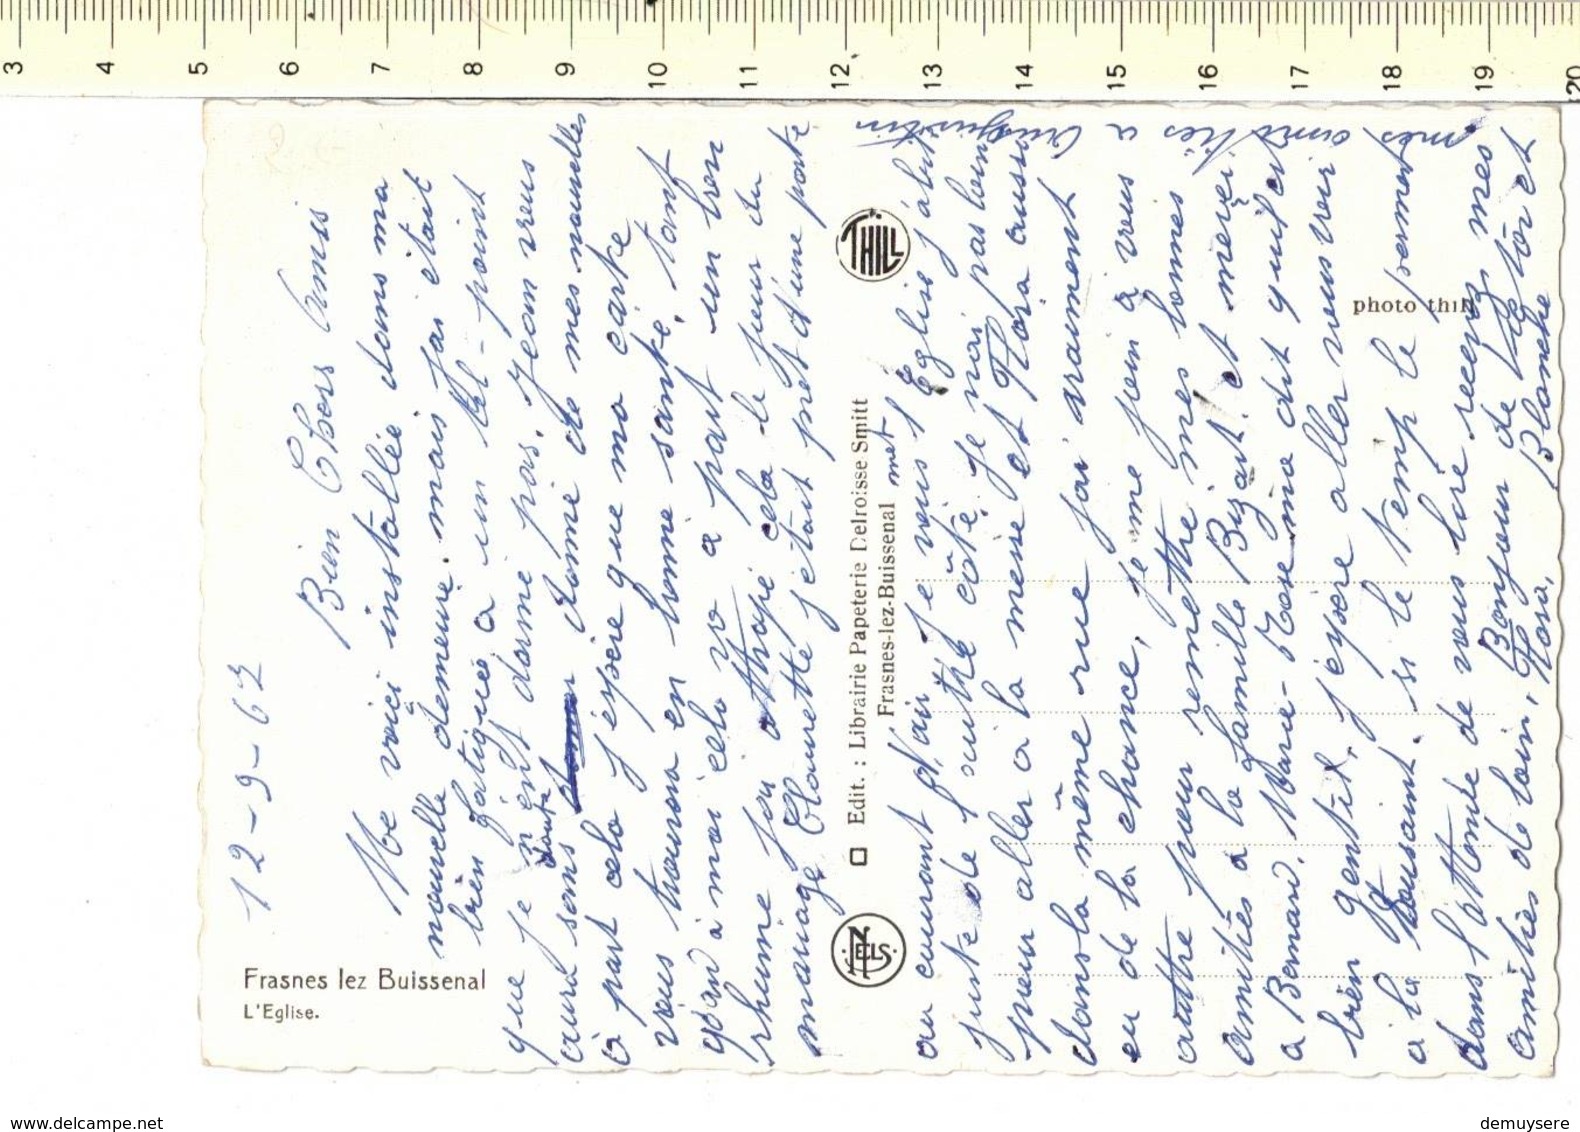 3 4 5 6 7 8 9 10 11 12 13 14 15 16 17 18 19 20
Frasnes lez Buissenal
L'Eglise.
12-9-62
Bien Chers Amis
Me voici installée dans ma
nouvelle demeure. mais j'ai était
bien fatiguée à un tel-point
que je n'ent dormé pas. Jean vous
aura sans doute donné de mes nouvelles
à part cela j'éspère que ma carte
vous trouvera en bonne santé, tant
quand à moi cela va a part un bon
rhume j'ai attrapé cela le jour du
mariage Claurette j'etait pret d'une porte
NELS
THILL
Edit. : Librairie Papeterie Delroisse Smitt
Frasnes-lez-Buissenal
photo thill
au courant d'air je vous met l'Eglise j'abite
juste de l'autre côté, je n'ai pas loin
pour aller a la messe et Flora aussi
dans la même rue j'ai vraiment
eu de la chance, je me join a vous
autre pour remettre mes bonnes
amitiés a la famille Bizart et merci
a Bernard, Marie-Rose ma dit qu'il et
bien gentil, j'espère aller vous voir
a la tousaint. si le temp le permet,
dans l'attente de vous lire recevez mes
amitiés de loin, Bonjour de Victor et
Flora, Blanche
mes amitiés a Augustin
www.delcampe.net
demuysere